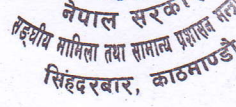 नेपाल सरकार
सङ्घीय मामिला तथा सामान्य प्रशासन
सिंहदरबार, काठमाण्डौ